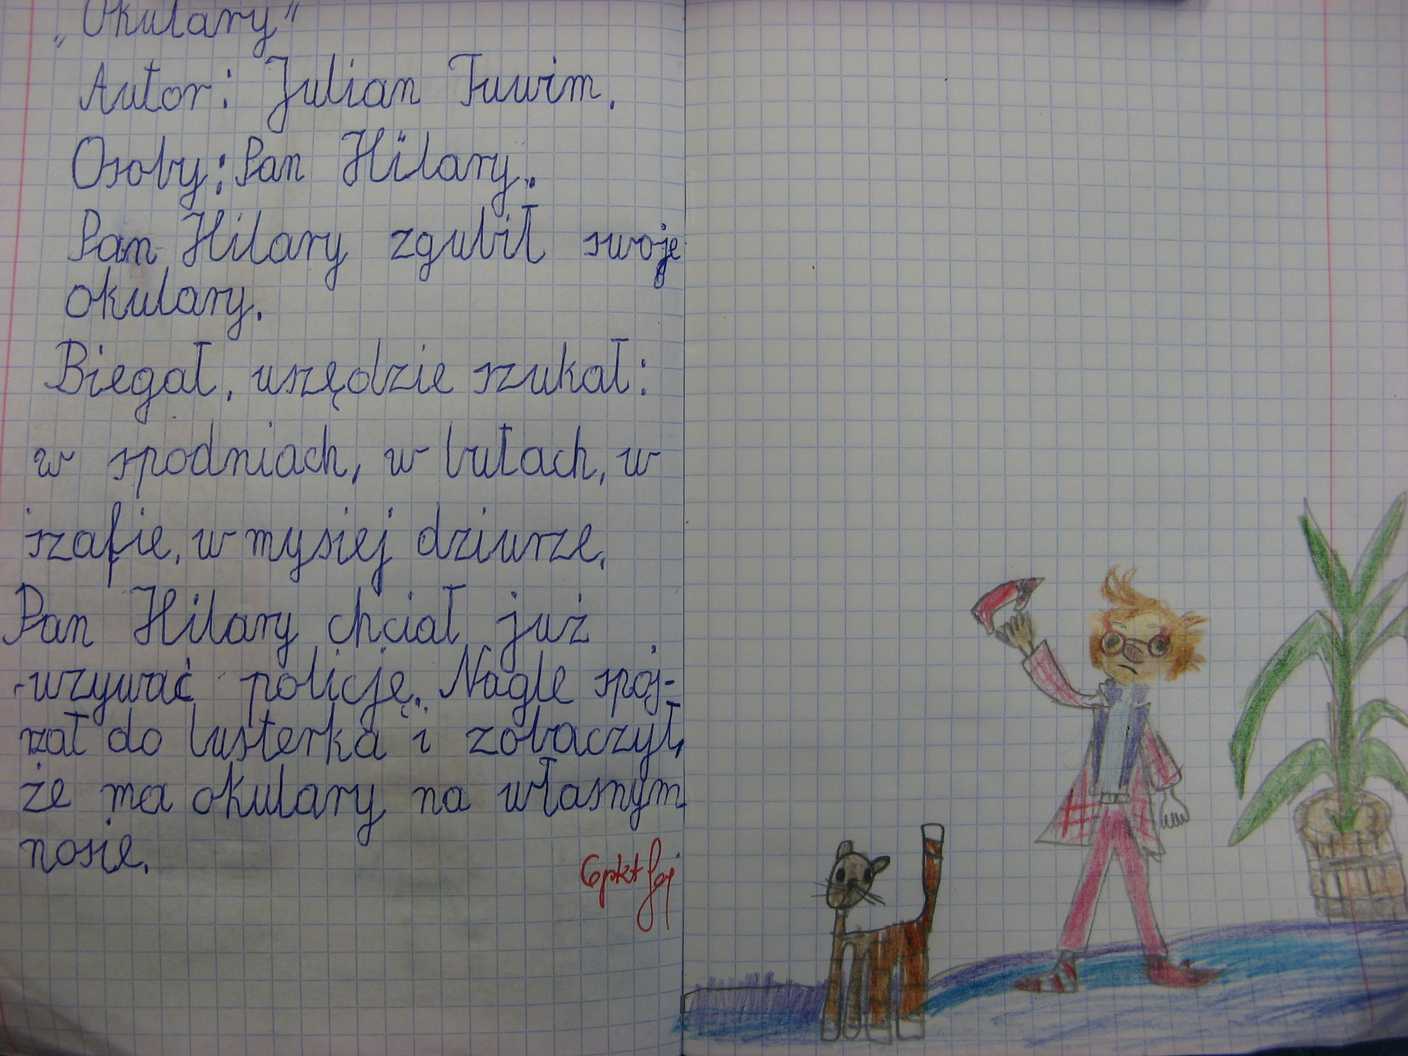 „Okulary"
Autor: Julian Tuwim.
Osoby: Pan Hilary.
Pan Hilary zgubił swoje
okulary.
Biegał, wszędzie szukał:
w spodniach, w butach, w
szafie, w mysiej dziurze.
Pan Hilary chciał już
wzywać policję. Nagle spoj-
rzał do lusterka i zobaczył,
że ma okulary na własnym
nosie.
6pkt